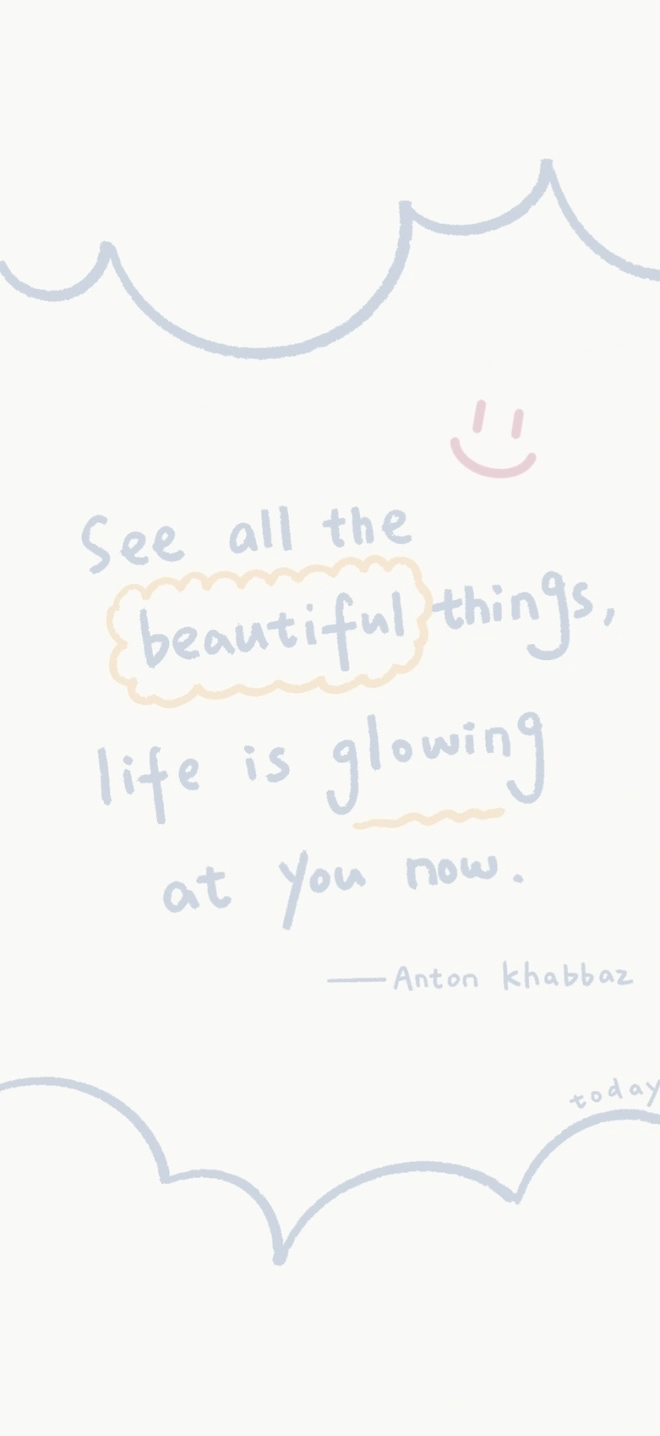 See all the
beautiful things,
life is glowing
at you now.
—Anton khabbaz
today